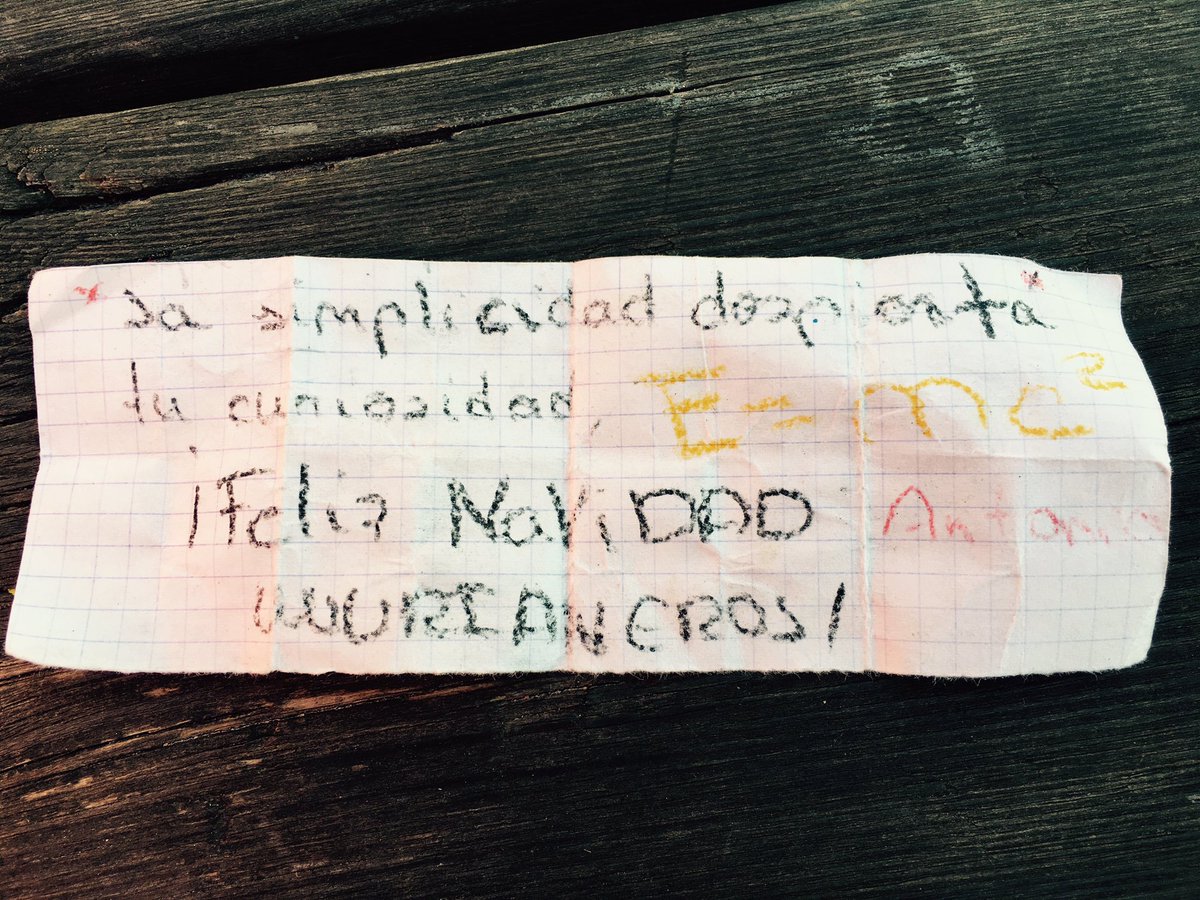 *La simplicidad despierta*
tu curiosidad, E=mc²
¡Feliz NaViDAD Antonio